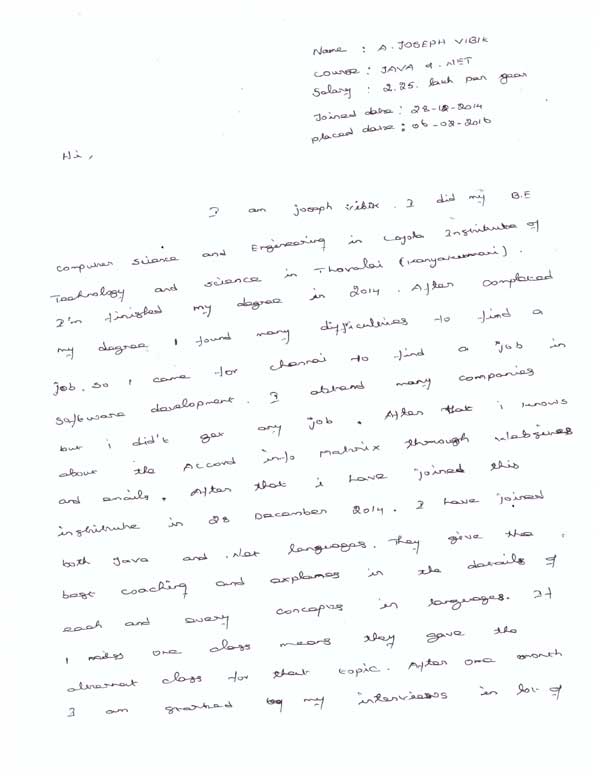 Name : A. JOSEPH VIBIK
Course : JAVA & .NET
Salary : 2.25. lack per year
Joined date : 28-12-2014
placed date : 06-02-2016
Hi,
I am joseph vibik. I did my B.E
computer science and Engineering in Loyola Institute of
Technology and science in Thovalai (kanyakumari).
I'm finished my degree in 2014. After completed
my degree I found many difficulties to find a
job. so i came for chennai to find a job in
software development. I attend many companies
but i did't get any job. After that i knows
about the Accord info Matrix through websites
and emails. After that i have joined this
institute in 28 December 2014. I have joined
both Java and .Net languages. They give the
best coaching and explames in the details of
each and every concepts in languages. If
I miss one class means they gave the
alternat class for that topic. After one month
I am started my interviews in lot of